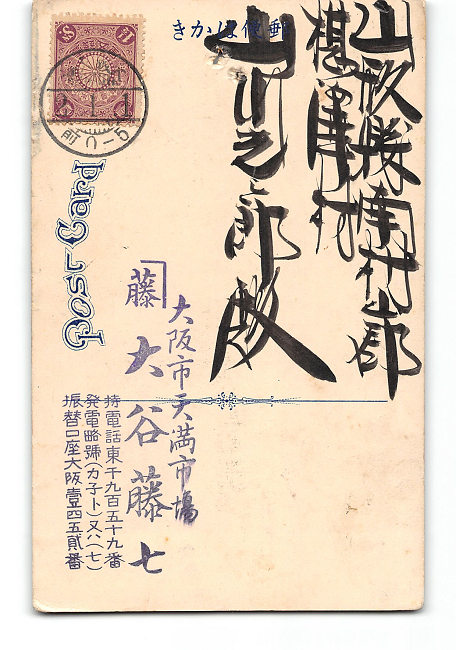 郵便はかき
山形縣東村山郡
村
郎殿
Post Card
大阪市天満市場
藤
大谷藤七
持電話東千九百五十九番
發電略號(カ子ト)又ハ(七)
振替口座大阪壹四五貳番
前0-5